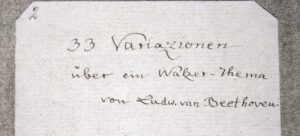 2
33 Variazionen
über ein Walzer-Thema
von Ludw. van Beethoven